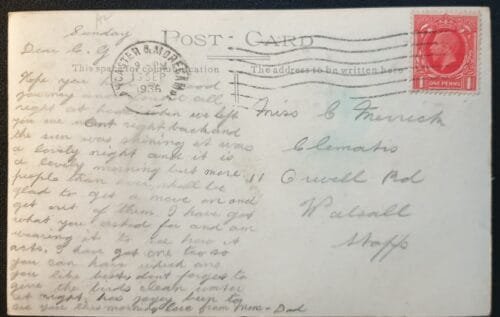 Sunday
Dear C. G
POST CARD
This space for communication
The address to be written here
LANCASTER & MORECAMBE
13 SEP
1936
ONE PENNY
Hope you good
journey all
right at when we left
you we went right back and
the sun was shining it was
a lovely night and it is
a lovely morning but more
people than ever shall be
glad to get a move on and
get out of them. I have got
what you asked for and am
wearing it to see how it
acts, I have got one too so
you can have which one
you like best, dont forget to
give the birds clean water
at night, has joyey been to
see you this morning Love from Mum - Dad
Miss C Merrick
Clematis
11 Orwell Rd
Walsall
Staffs